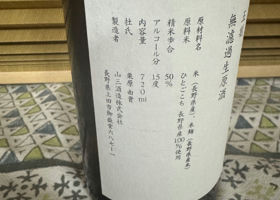 無濾過生原酒
原材料名 米(長野県産)、米麹(長野県産米)
原料米 ひとごこち 長野県産100%使用
精米歩合 50%
アルコール分 15度
内容量 720ml
杜氏 栗原由貴
製造者 山三酒造株式会社
長野県上田市御嶽堂687-1